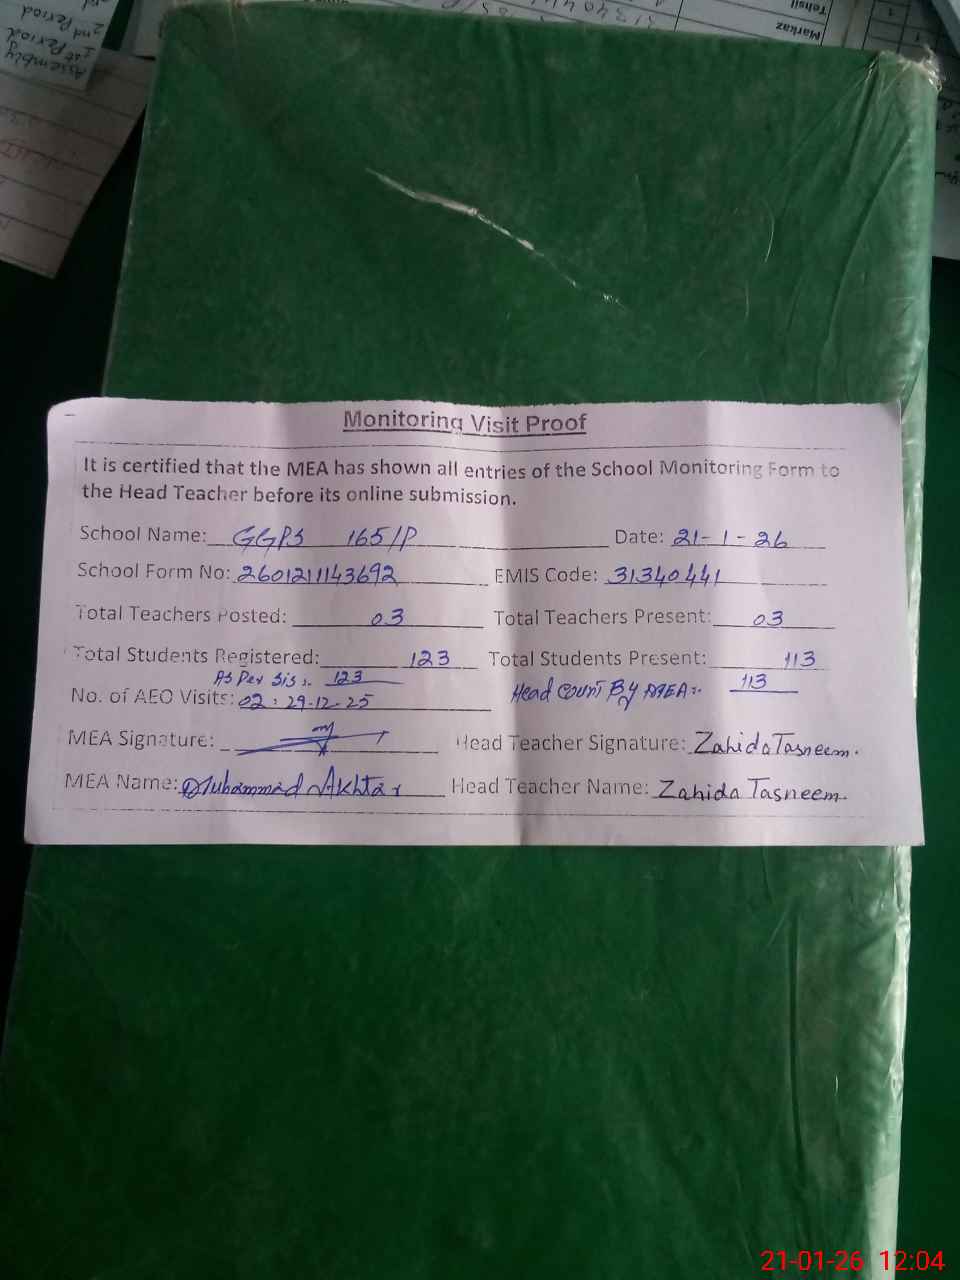 Tehsil
Markaz
2nd Period
1st Period
Assembly
Monitoring Visit Proof
It is certified that the MEA has shown all entries of the School Monitoring Form to
the Head Teacher before its online submission.
School Name: GGPS 165/P Date: 21-1-26
School Form No: 2601211143692 EMIS Code: 31340441
Total Teachers Posted: 03 Total Teachers Present: 03
Total Students Registered: 123 Total Students Present: 113
As Per Sis:. 123 Head Count By MEA:. 113
No. of AEO Visits: 02: 29-12-25
MEA Signature: Head Teacher Signature: Zahida Tasneem.
MEA Name: Muhammad Akhtar Head Teacher Name: Zahida Tasneem.
21-01-26 12:04